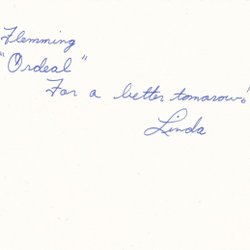 Flemming
"Ordeal"
For a better tomarow!
Linda